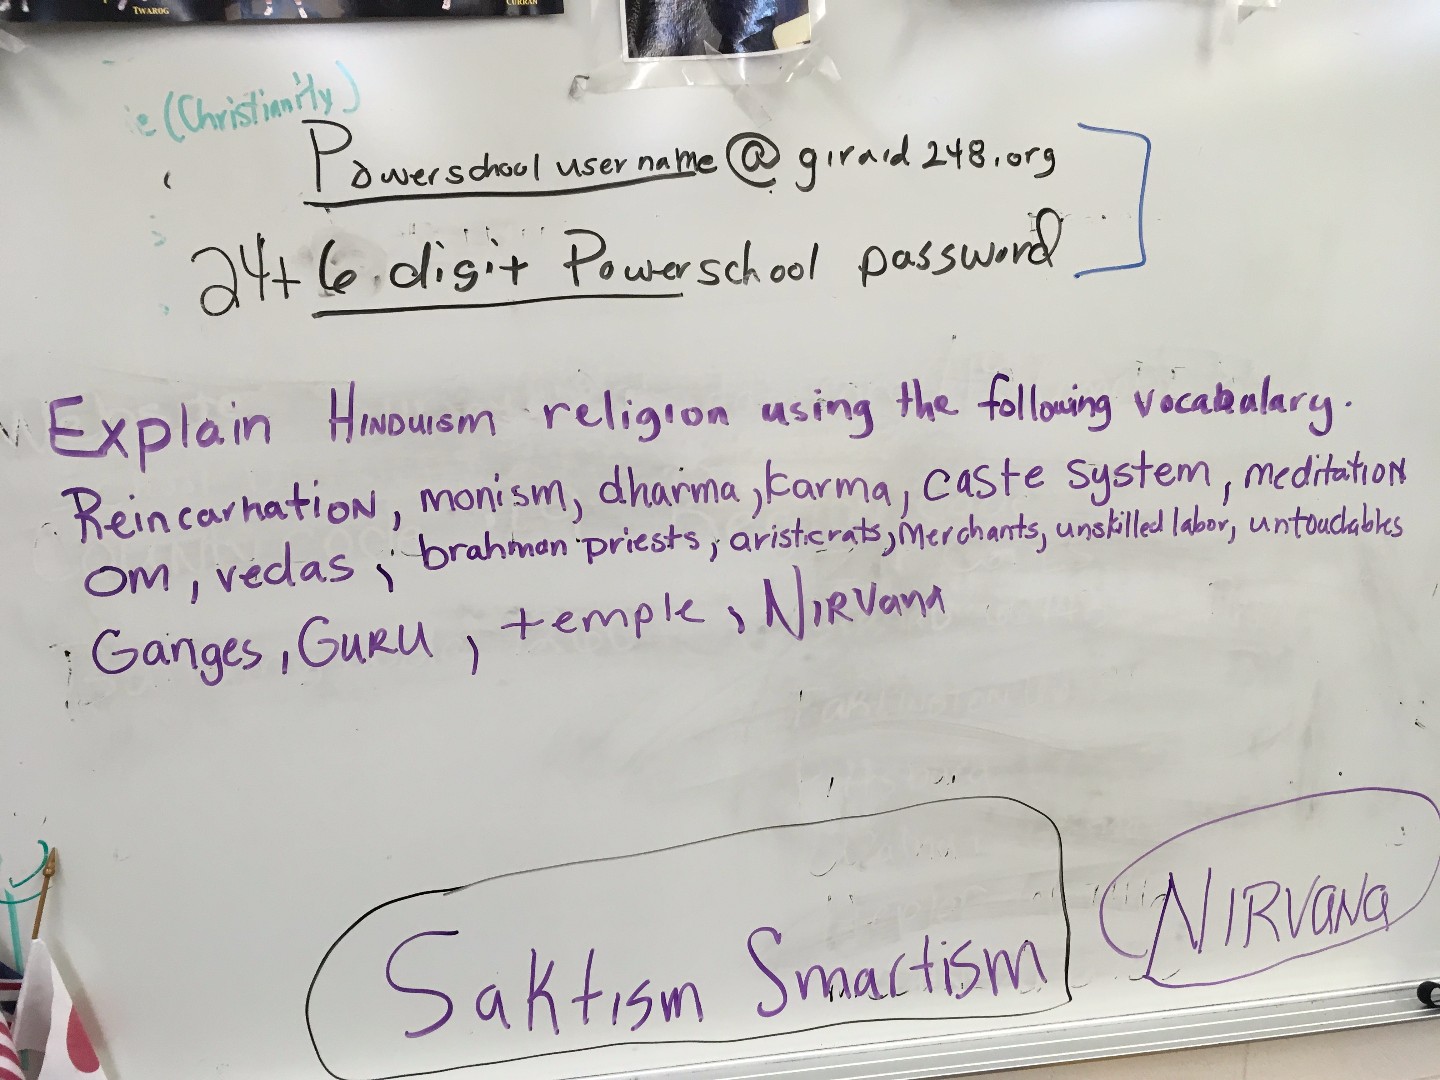 TWAROG
CURRAN
e (Christianity)
Powerschool username @ girard248.org
24+ 6 digit Powerschool password
Explain HINDUISM religion using the following vocabalary.
Reincarnation, monism, dharma, karma, caste system, meditation
OM, vedas, brahman priests, aristicrats, Merchants, unskilled labor, untouchables
Ganges, GURU, temple, NIRvana
Saktism Smartism
NIRVANA